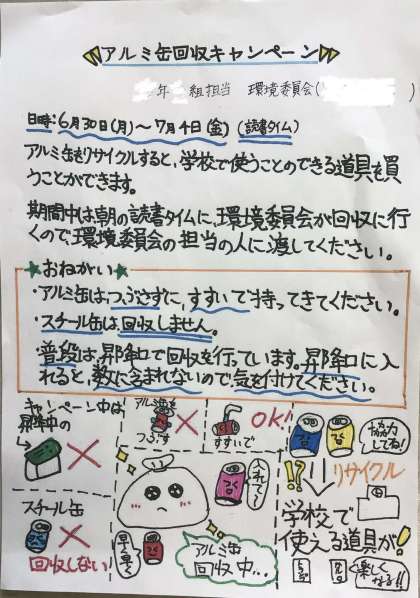 アルミ缶回収キャンペーン
年 組担当 環境委員会( )
日時:6月30日(月)～7月4日(金)(読書タイム)
アルミ缶をリサイクルすると、学校で使うことのできる道具を買
うことができます。
期間中は、朝の読書タイムに、環境委員会が回収に行
くので、環境委員会の担当の人に渡してください。
★おねがい★
・アルミ缶は、つぶさずに、すすいで持ってきてください。
・スチール缶は、回収しません。
・普段は、昇降口で回収を行っています。昇降口に入
れると、数に含まれないので気を付けてください。
キャンペーン中は
昇降口の
アルミ缶を
つぶす
OK!
すすいで
協力
してね!
スチール缶
回収しない
入れて～
早く早く
アルミ缶
回収中…
!?
リサイクル
学校で
使える道具が!
楽しく
なる!!